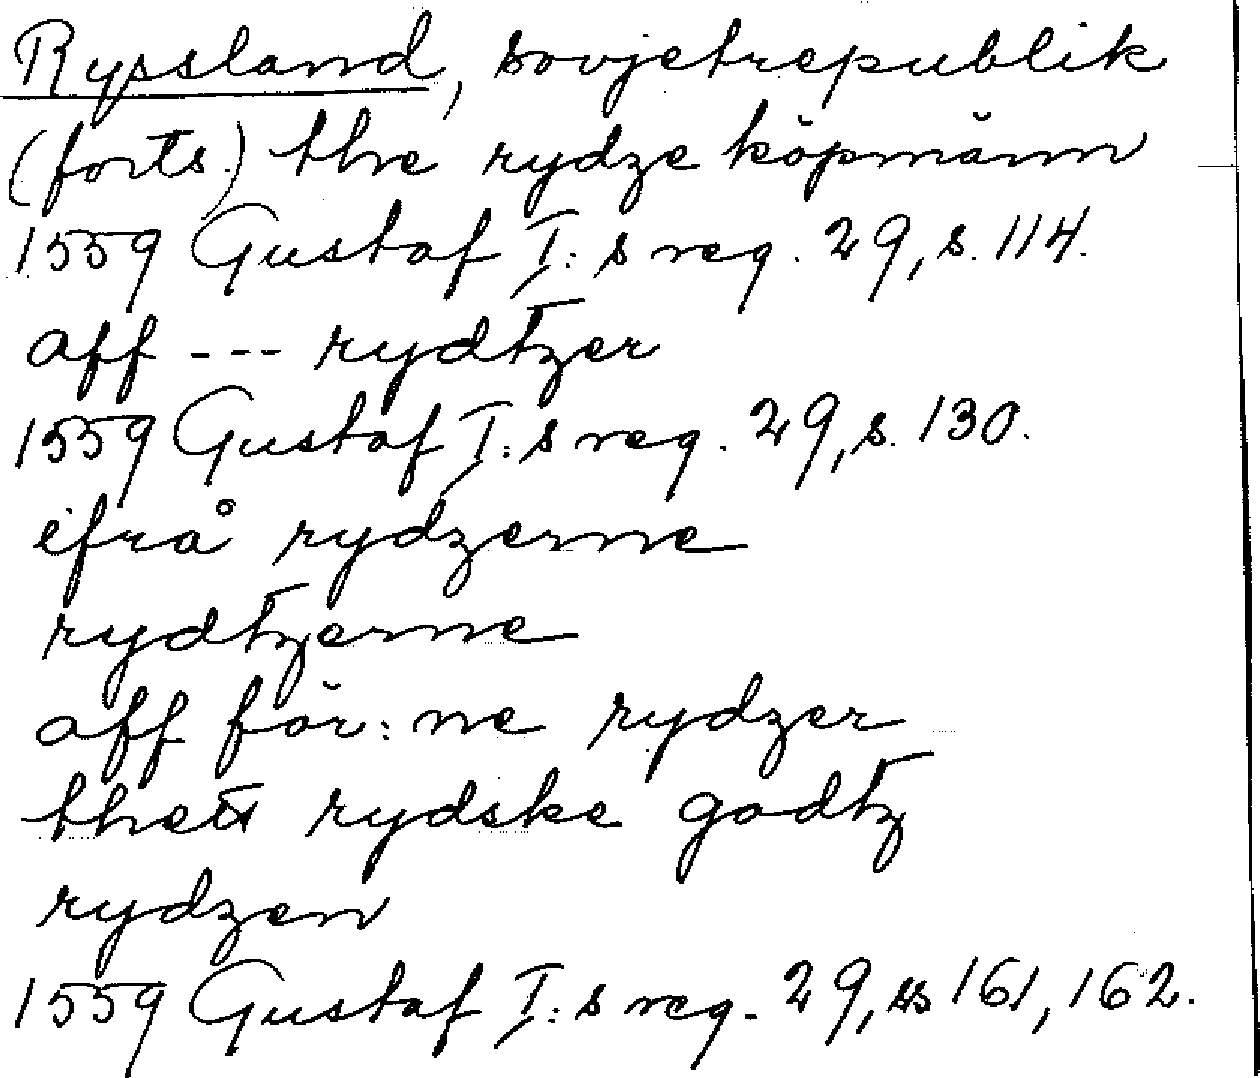 Ryssland, sovjetrepublik
(forts.) the rydze köpmänn
1559 Gustaf I:s reg. 29, s. 114.
aff --- rydtzer
1559 Gustaf I:s reg. 29, s. 130.
ifrå rydzerne
rydtzerne
aff för:ne rydzer
thett rydske godtz
rydzen
1559 Gustaf I:s reg. 29, ss 161, 162.